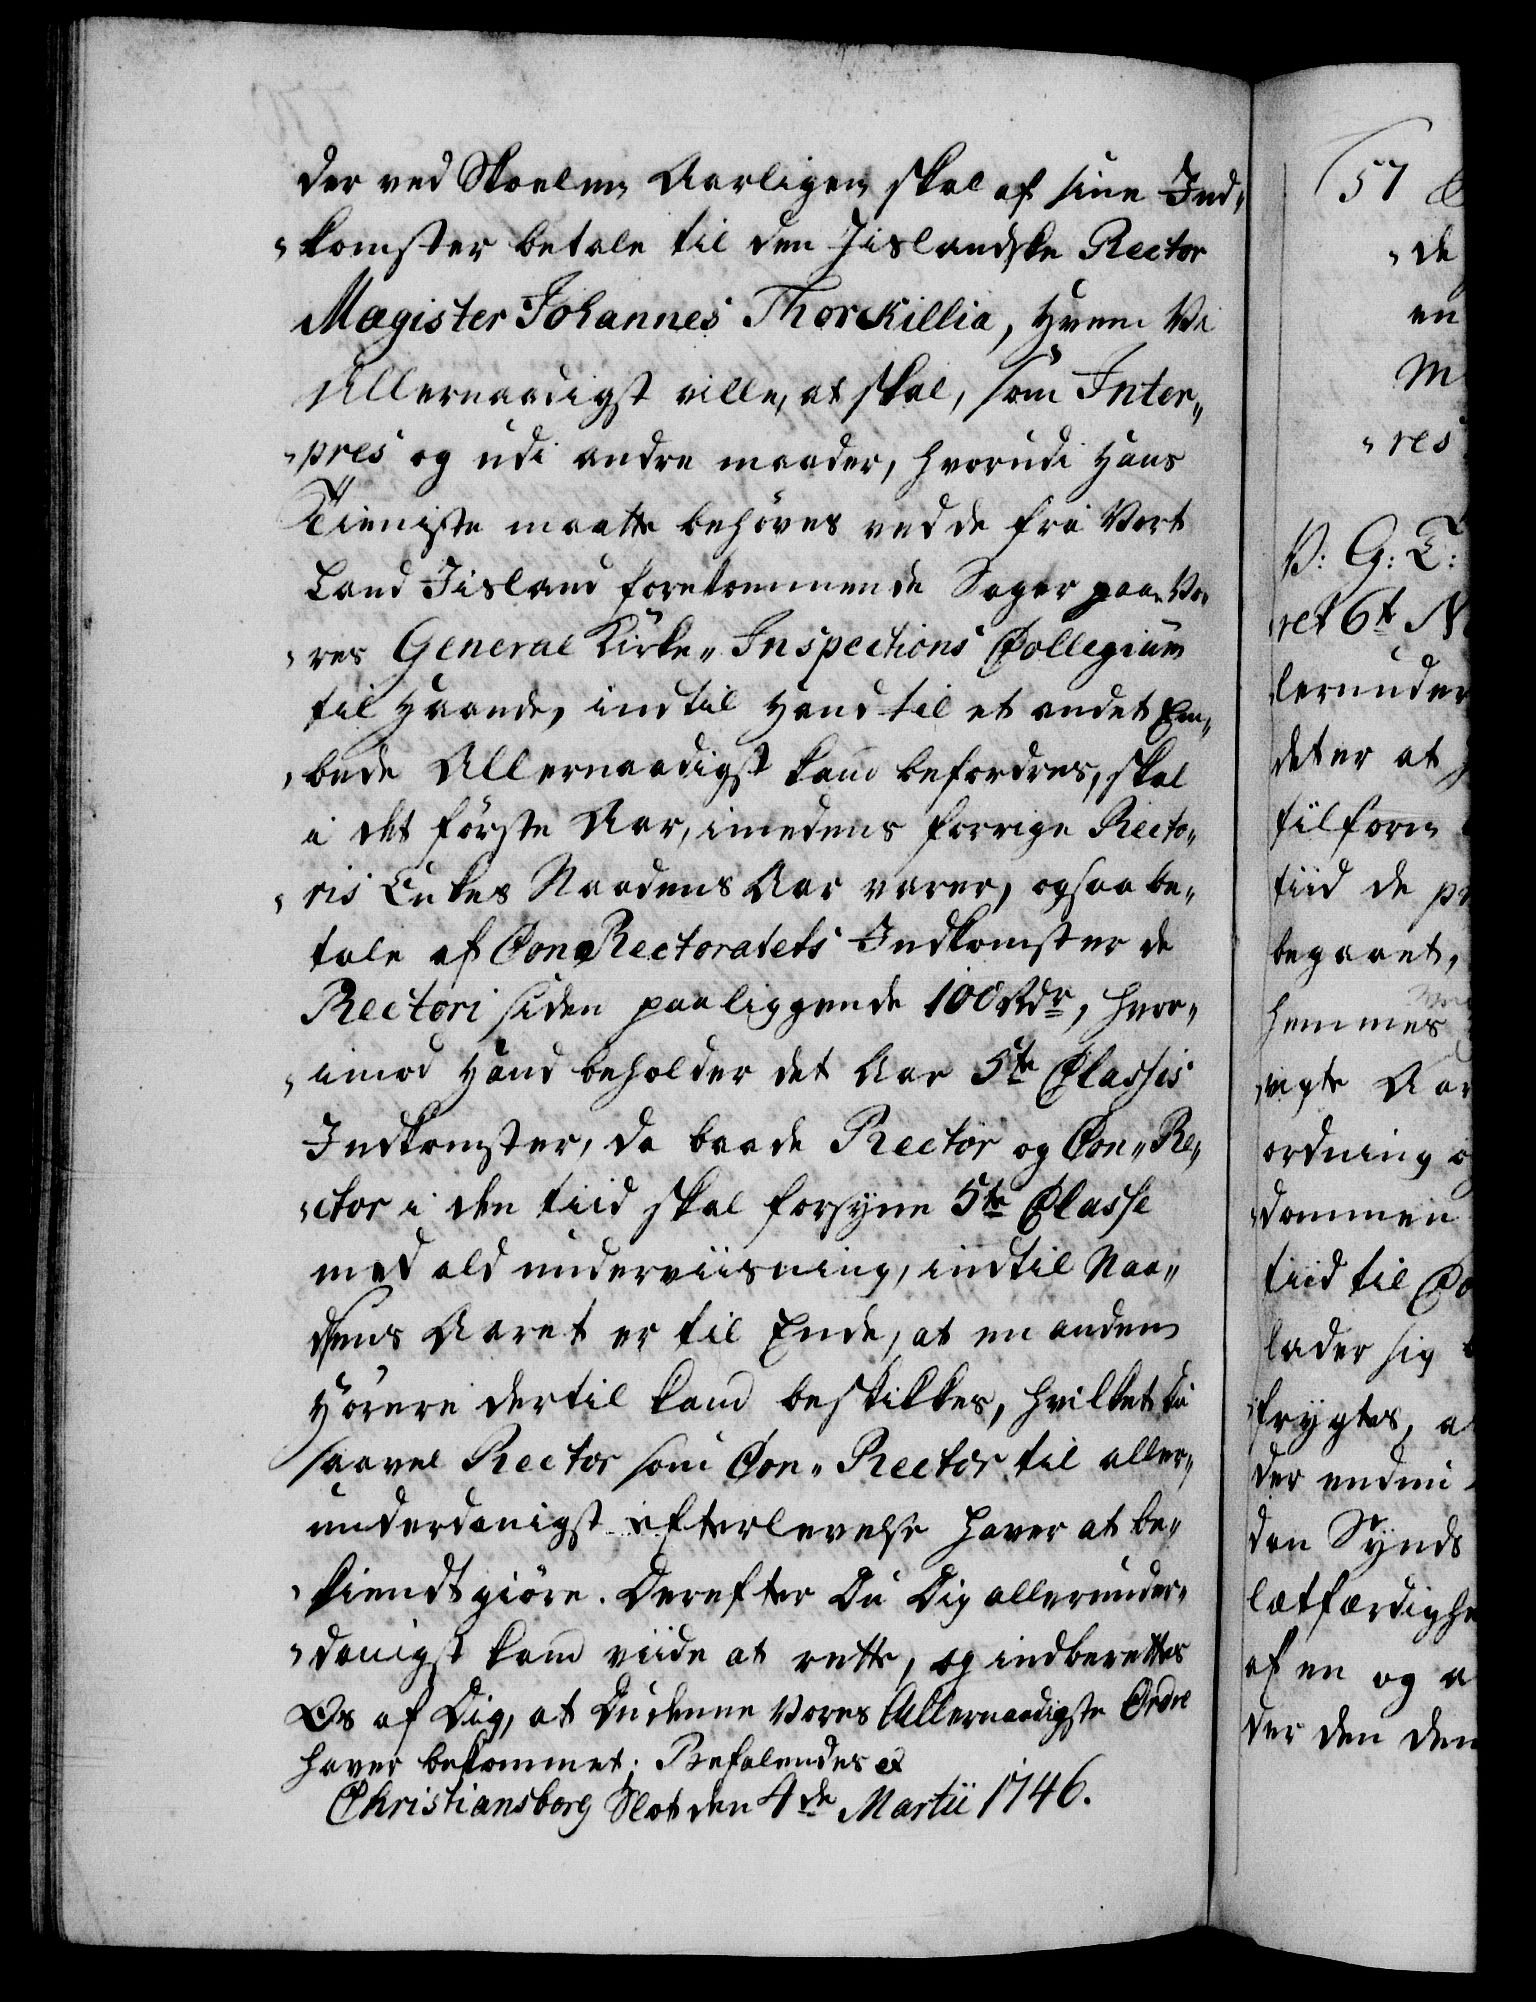 der ved Skoelen Aarligen skal af sine Ind„
„komster betale til den Jislandske Rector
Magister Johannes Thorkillia, hvem Vi
Allernaadigst ville, at skal, som Inter„
„pres og udi andre maader, hvorudi hans
Tieniste maatte behöves ved de fra Vort
Land Jisland forekommende Sager paa Vo„
„res General Kirke„Inspections Collegium
til Haande, indtil Hand til et andet Em„
„bede Allernaadigst kand befordres, skal
i det förste Aar, imedens forrige Recto„
„ris Enkes Naadens Aar varer, ogsaa be„
tale af Con Rectoratets Indkomster de
Rectori siden paaliggende 100 Rdr, hvor„
„imod Hand beholder det Aar 5te Classis
Indkomster, da baade Rector og Con„Re„
„ctor i den tiid skal forsyne 5te Classe
med ald underviisning, indtil Naa„
dens Aaret er til Ende, at en anden
Hörere dertil kand beskikkes, hvilket du
saavel Rector som Con„Rector til aller„
underdanigst efterlevelse haver at be„
„kiendtgiöre. Derefter Du Dig allerunder„
„danigst kand viide at rette, og indberettes
Os af Dig, at Du denne Vores Allernaadigste Ordre
haver bekommet. Befalendes etc
Christiansborg Slot den 4de Martii 1746.
57
„de
en
M
„res
P: G: T:
ret 6t N
lerunder
det er at
tilforn
tiid de
begaaet,
hemmes
„vigte Aar
ordning
„dommen
tiid til
lader sig
frygtes,
der endnu
den Synds
letfærdighe
af en og a
der den den